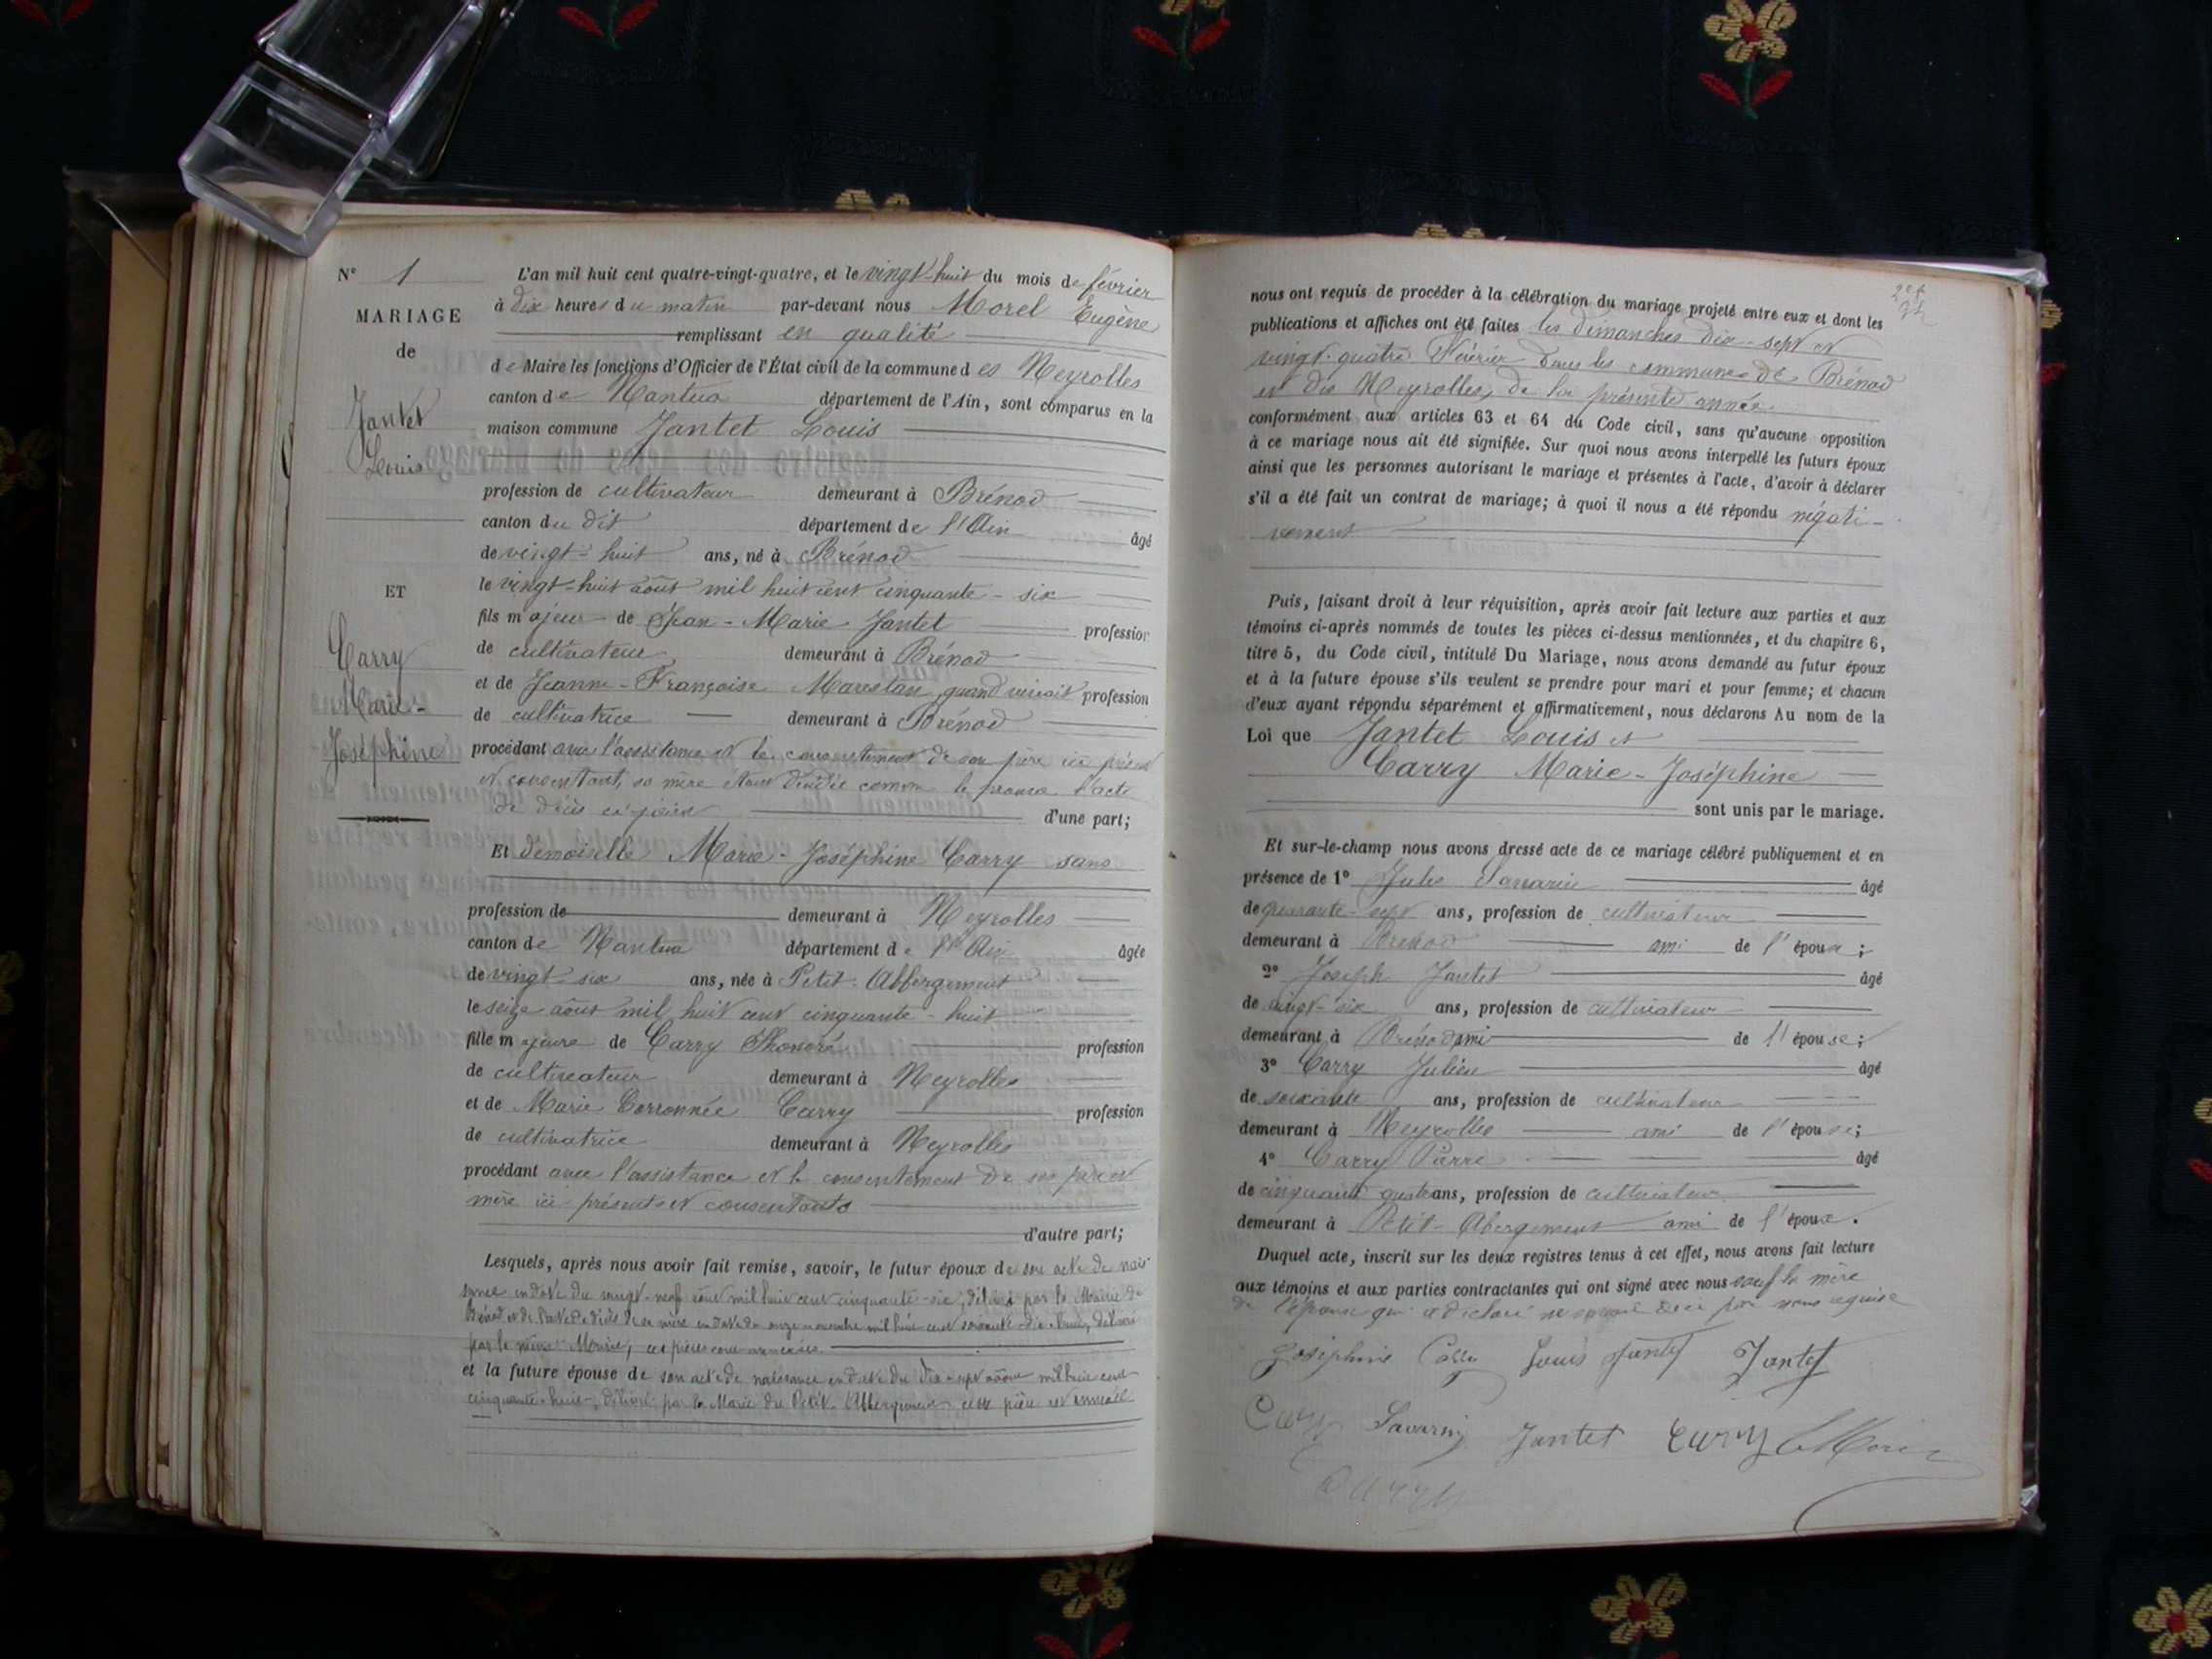 N° 1
MARIAGE
de
Jantet
Louis
ET
Carry
Marie-
Joséphine
L'an mil huit cent quatre-vingt-quatre, et le vingt-huit du mois de février
à dix heures du matin par-devant nous Morel Eugène
remplissant en qualité
de Maire les fonctions d'Officier de l'État civil de la commune des Neyrolles
canton de Nantua département de l'Ain, sont comparus en la
maison commune Jantet Louis
profession de cultivateur demeurant à Brénod
canton du dit département de l'Ain âgé
de vingt-huit ans, né à Brénod
le vingt-huit août mil huit cent cinquante-six
fils majeur de Jean-Marie Jantet profession
de cultivateur demeurant à Brénod
et de Jeanne-Françoise quand vivait profession
de cultivatrice demeurant à Brénod
procédant avec l'assistance et le consentement de son père ici présent
et consentant, sa mère étant décédée comme le prouve l'acte
de décès ci-joint d'une part;
Et demoiselle Marie-Joséphine Carry sans
profession de demeurant à Neyrolles
canton de Nantua département de l'Ain âgée
de vingt six ans, née à Petit-Abbergement
le seize août mil huit cent cinquante-huit
fille majeure de Carry Honoré profession
de cultivateur demeurant à Neyrolles
et de Marie Carry profession
de cultivatrice demeurant à Neyrolles
procédant avec l'assistance et le consentement de ses père et
mère ici présents et consentants
d'autre part;
Lesquels, après nous avoir fait remise, savoir, le futur époux de son acte de nais
sance en date du vingt-neuf août mil huit cent cinquante-six, délivré par la Mairie de
Brénod et de l'acte de décès de sa mère en date du onze novembre mil huit cent soixante-dix-huit, délivré
par la même Mairie, ces pièces sont annexées
et la future épouse de son acte de naissance en date du dix-sept août mil huit cent
cinquante-huit, délivré par la Mairie du Petit-Abbergement cette pièce est annexée
nous ont requis de procéder à la célébration du mariage projeté entre eux et dont les
publications et affiches ont été faites les dimanches dix-sept et
vingt-quatre Février dans les communes de Brénod
et des Neyrolles, de la présente année
conformément aux articles 63 et 64 du Code civil, sans qu'aucune opposition
à ce mariage nous ait été signifiée. Sur quoi nous avons interpellé les futurs époux
ainsi que les personnes autorisant le mariage et présentes à l'acte, d'avoir à déclarer
s'il a été fait un contrat de mariage; à quoi il nous a été répondu négati-
vement
Puis, faisant droit à leur réquisition, après avoir fait lecture aux parties et aux
témoins ci-après nommés de toutes les pièces ci-dessus mentionnées, et du chapitre 6,
titre 5, du Code civil, intitulé Du Mariage, nous avons demandé au futur époux
et à la future épouse s'ils veulent se prendre pour mari et pour femme; et chacun
d'eux ayant répondu séparément et affirmativement, nous déclarons Au nom de la
Loi que Jantet Louis et
Carry Marie-Joséphine
sont unis par le mariage.
Et sur-le-champ nous avons dressé acte de ce mariage célébré publiquement et en
présence de 1° Jules Savarin âgé
de quarante-sept ans, profession de cultivateur
demeurant à Brénod ami de l'époux;
2° Joseph Jantet âgé
de vingt-six ans, profession de cultivateur
demeurant à Brénod ami de l'épouse;
3° Carry Julien âgé
de soixante ans, profession de cultivateur
demeurant à Neyrolles ami de l'épouse;
4° Carry Pierre âgé
de cinquante quatre ans, profession de cultivateur
demeurant à Petit-Abergement ami de l'époux.
Duquel acte, inscrit sur les deux registres tenus à cet effet, nous avons fait lecture
aux témoins et aux parties contractantes qui ont signé avec nous sauf la mère
de l'épouse qui a déclaré ne savoir de ce par nous requise
Joséphine Carry Louis Jantet Jantet
Carry Savarin Jantet Carry Morel
Carry